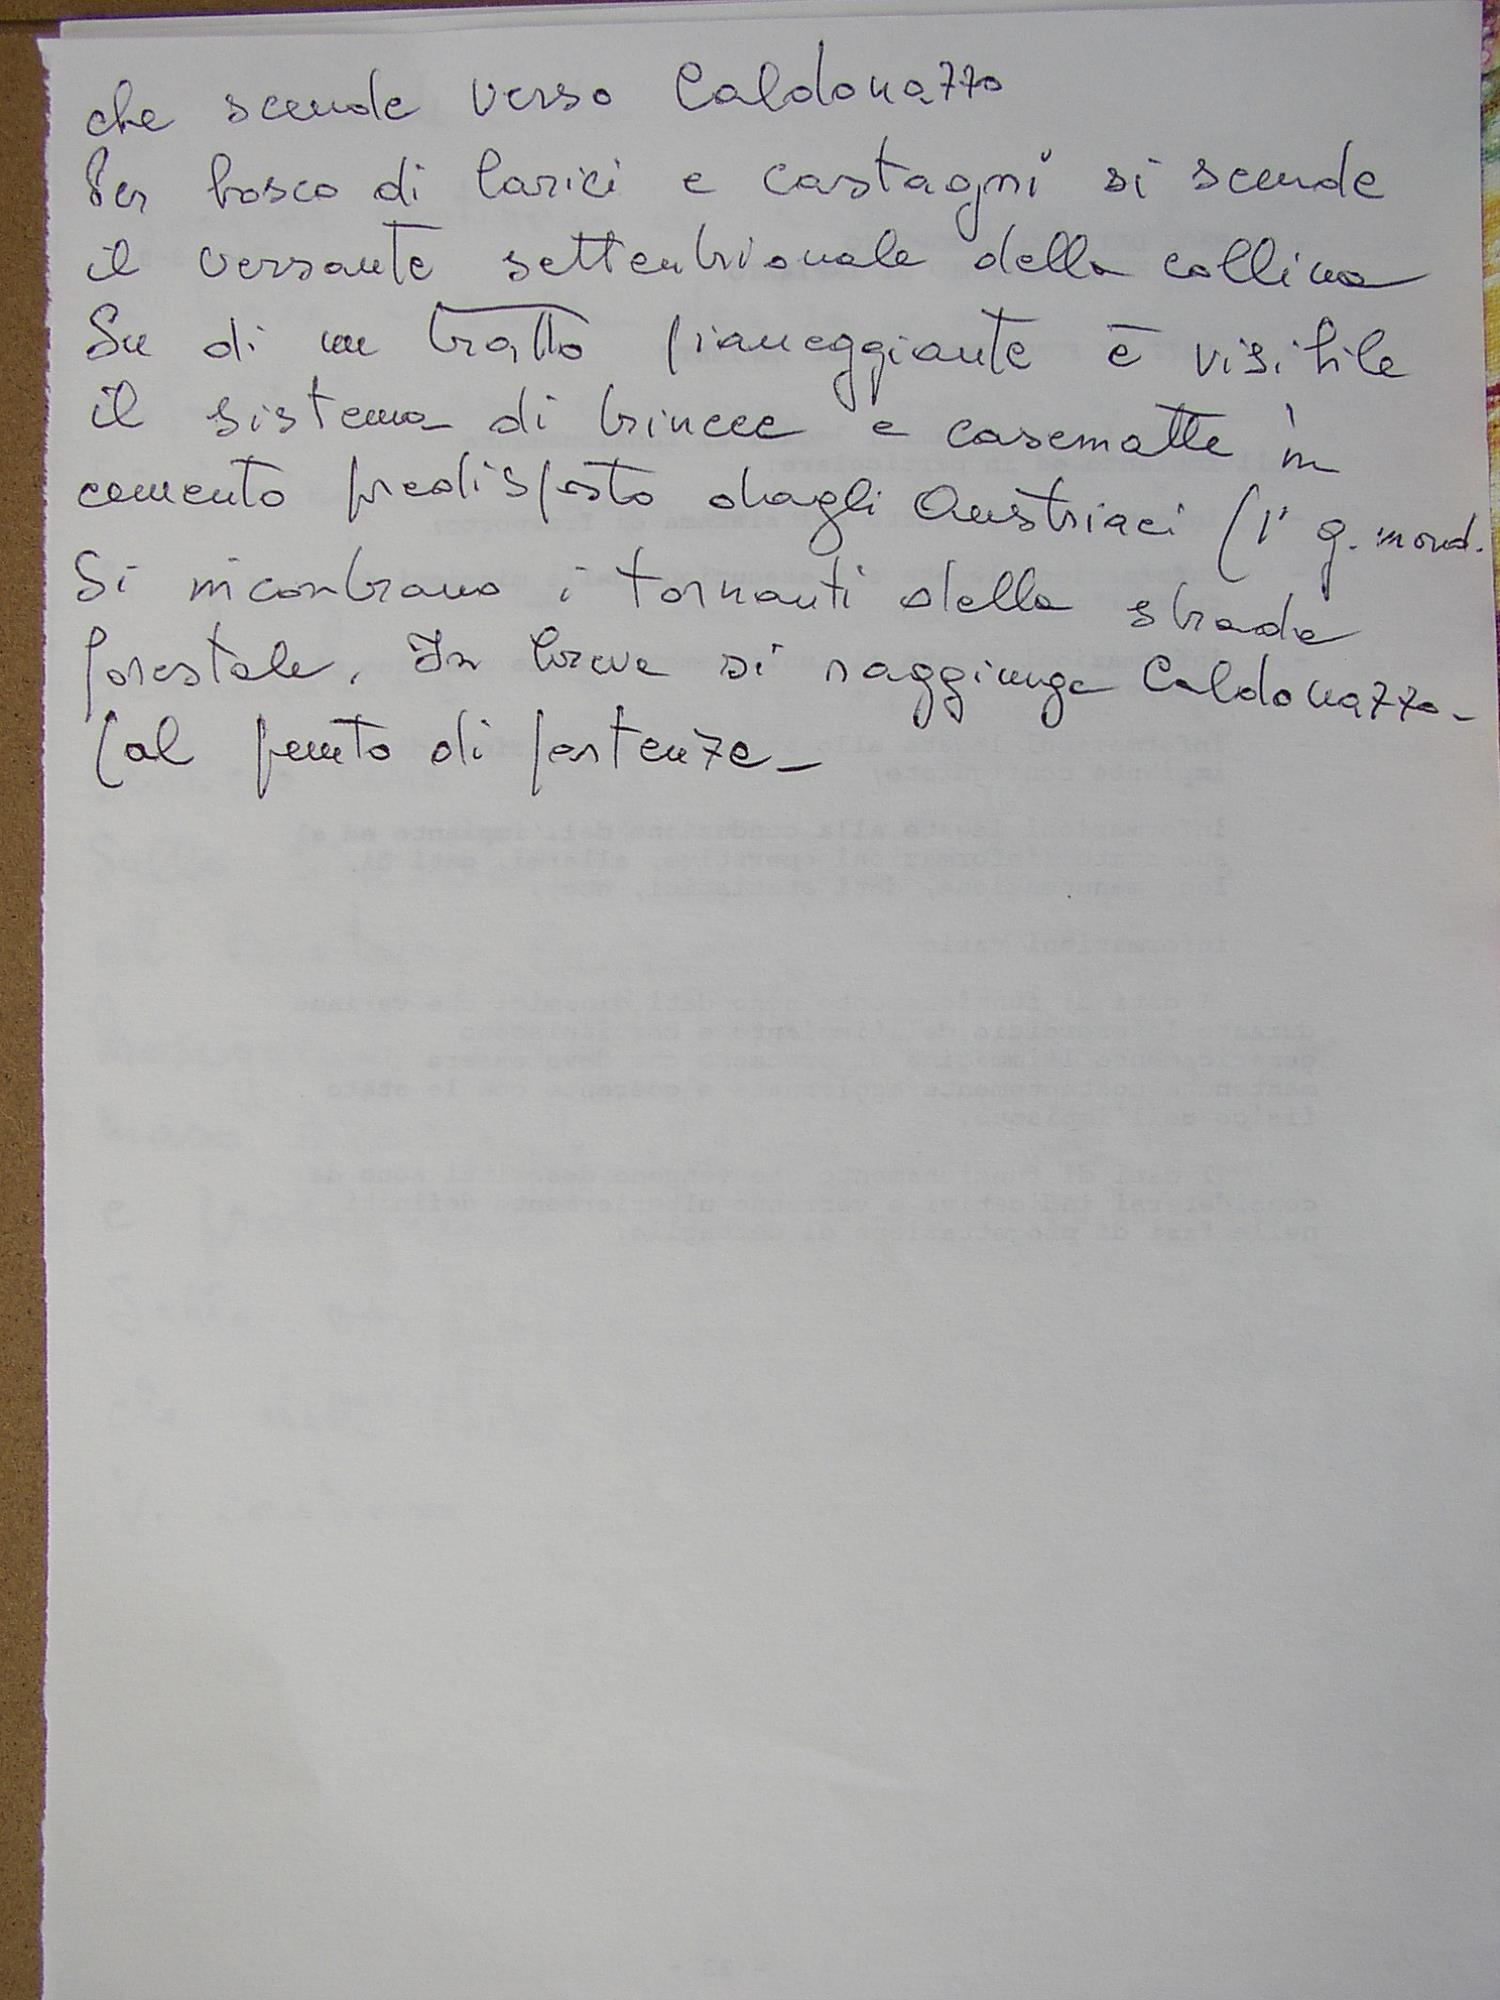 che scende verso Caldonazzo
Per bosco di larici e castagni si scende
il versante settentrionale della collina
Su di un tratto pianeggiante è visibile
il sistema di trincee e casematte in
cemento predisposto dagli Austriaci (1ª g. mond.
Si incontrano i tornanti della strada
forestale. In breve si raggiunge Caldonazzo-
(al punto di partenza-